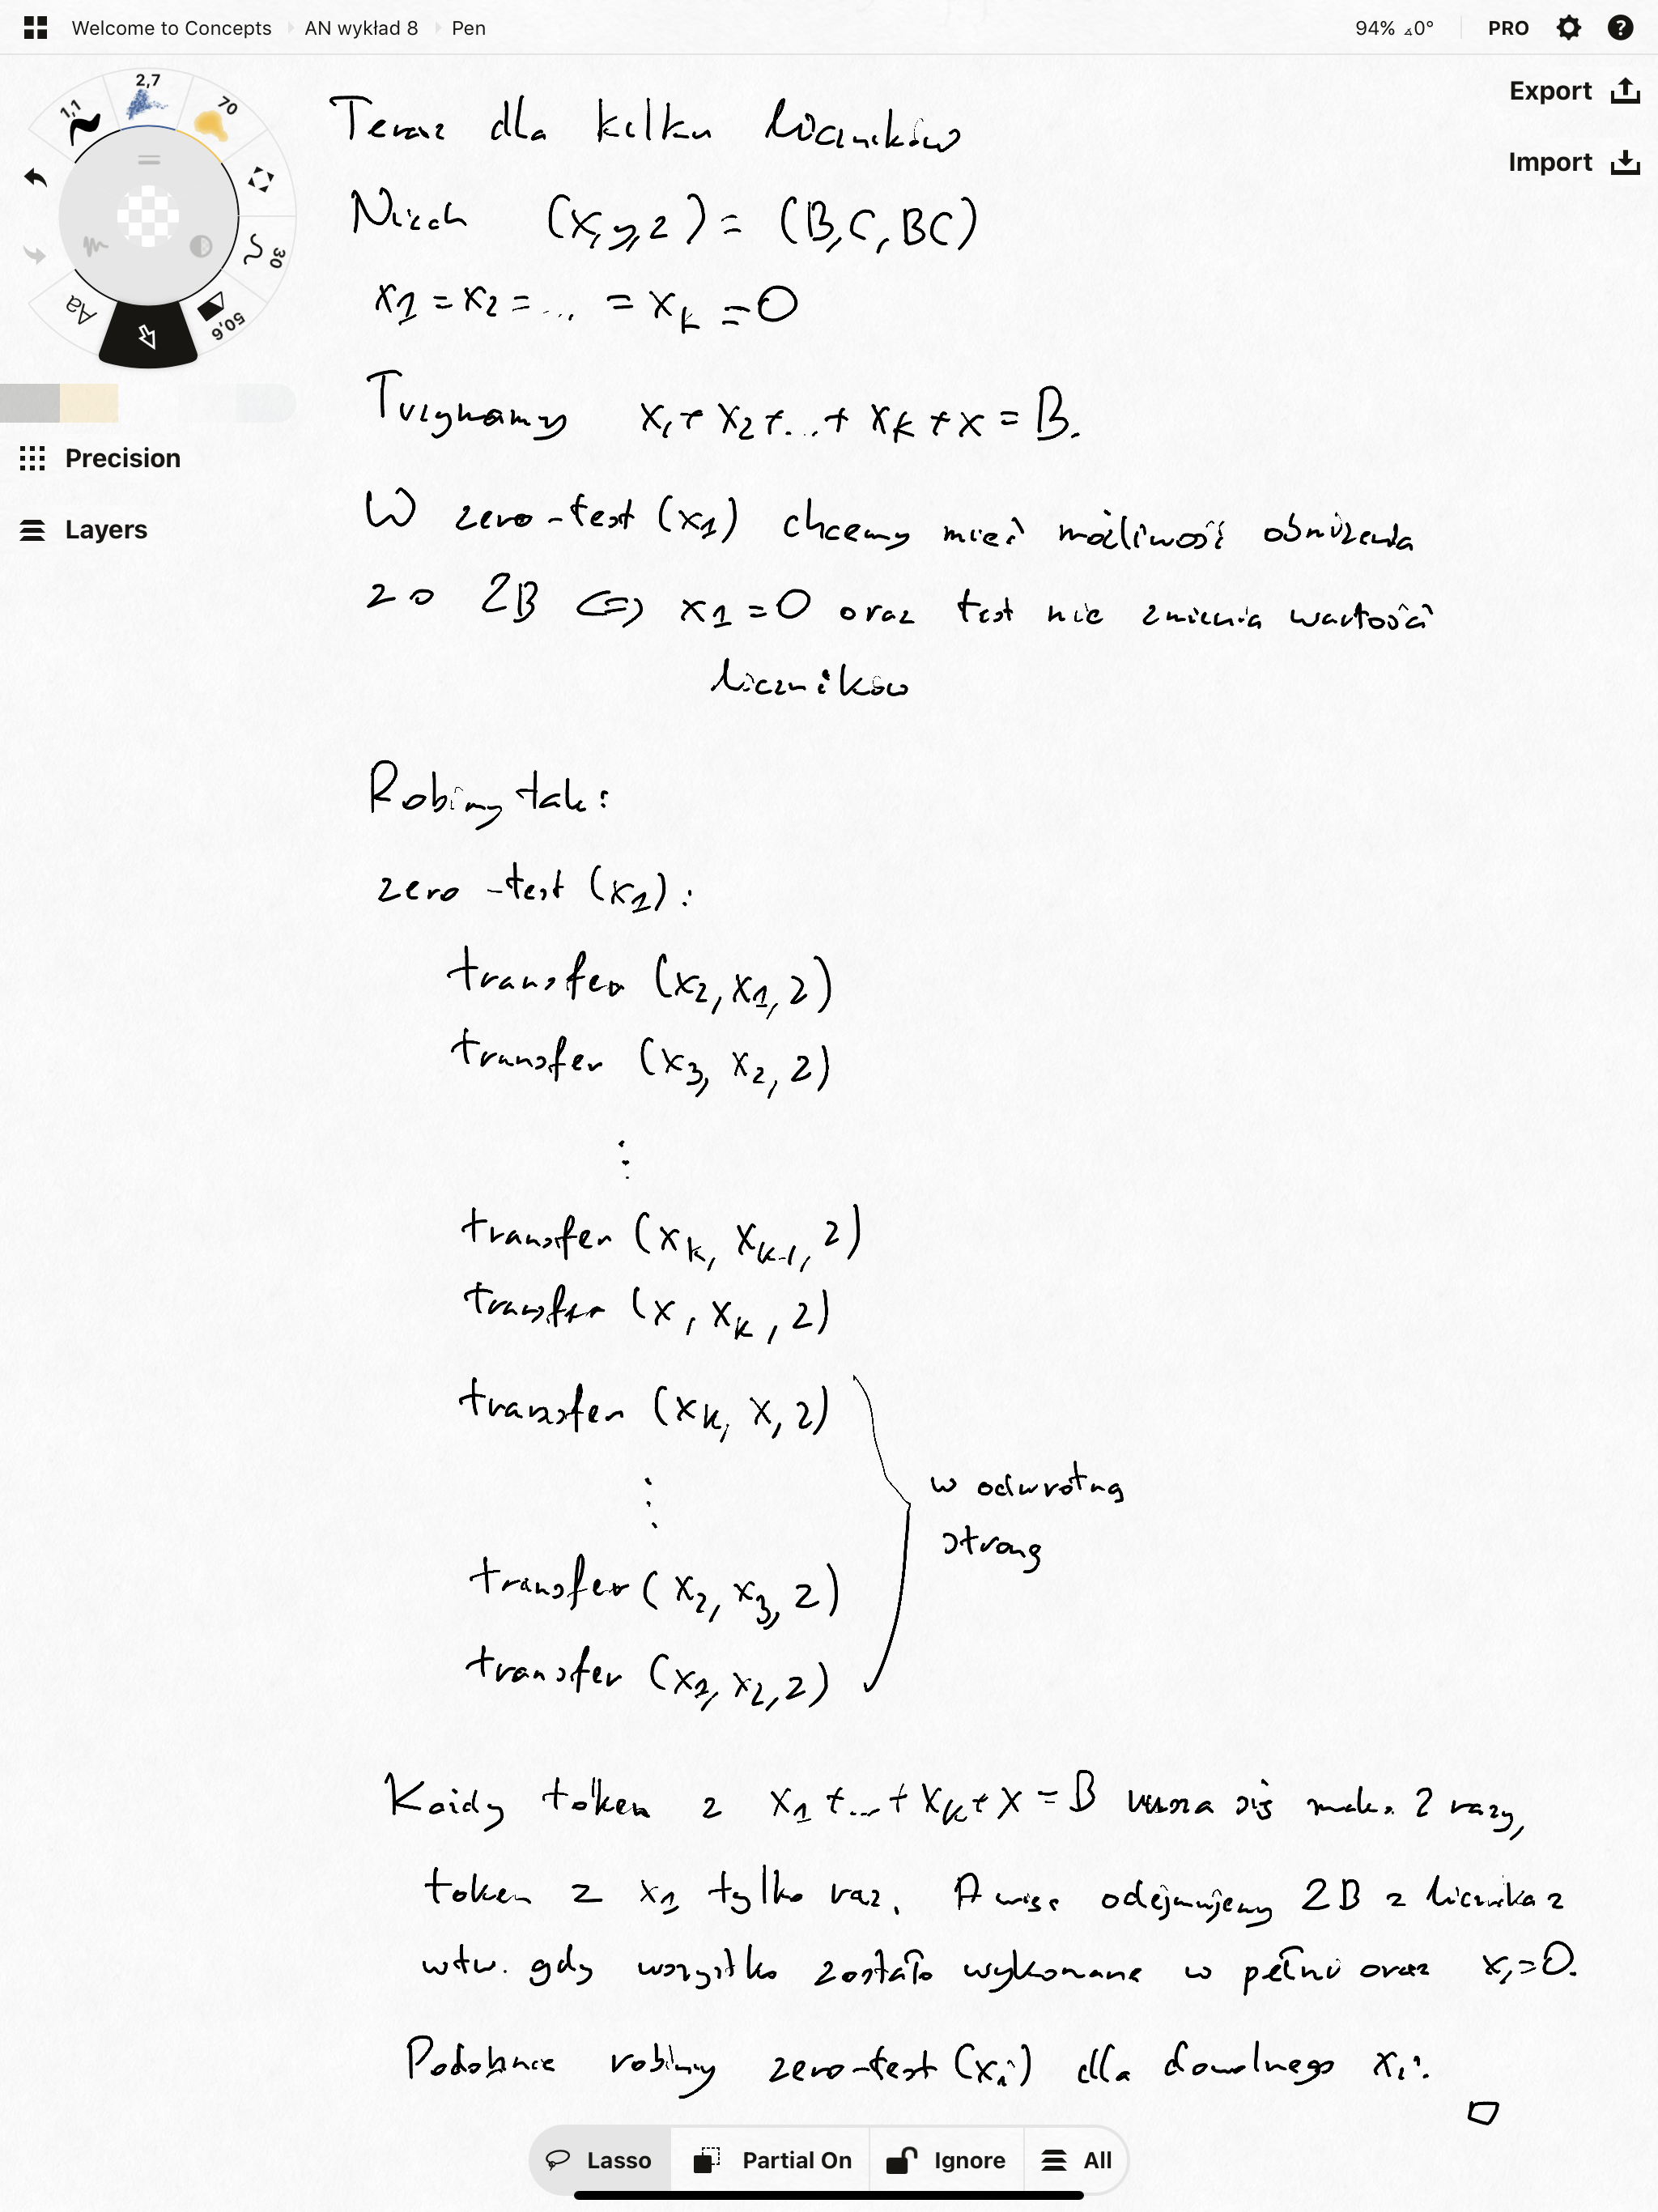 Welcome to Concepts AN wykład 8 Pen
94% ⊿0° PRO
Export
Import
1,1
2,7
70
30
50,6
Aa
Precision
Layers
Teraz dla kilku liczników
Niech (x,y,z) = (B,C,BC)
x1 = x2 = ... = xk = 0
Trzymamy x1 + x2 + ... + xk + x = B.
W zero-test (x1) chcemy mieć możliwość obniżenia
z o 2B <=> x1 = 0 oraz test nie zmienia wartości
liczników
Robimy tak:
zero-test (x1):
transfer (x2, x1, z)
transfer (x3, x2, z)
⋮
transfer (xk, xk-1, z)
transfer (x, xk, z)
transfer (xk, x, z)
⋮
w odwrotną
stronę
transfer (x2, x3, z)
transfer (x1, x2, z)
Każdy token z x1 + ... + xk + x = B rusza się maks. 2 razy,
token z x1 tylko raz. A więc odejmujemy 2B z licznika z
wtw. gdy wszystko zostało wykonane w pełni oraz x1 = 0.
Podobnie robimy zero-test (xi) dla dowolnego xi.
Lasso Partial On Ignore All